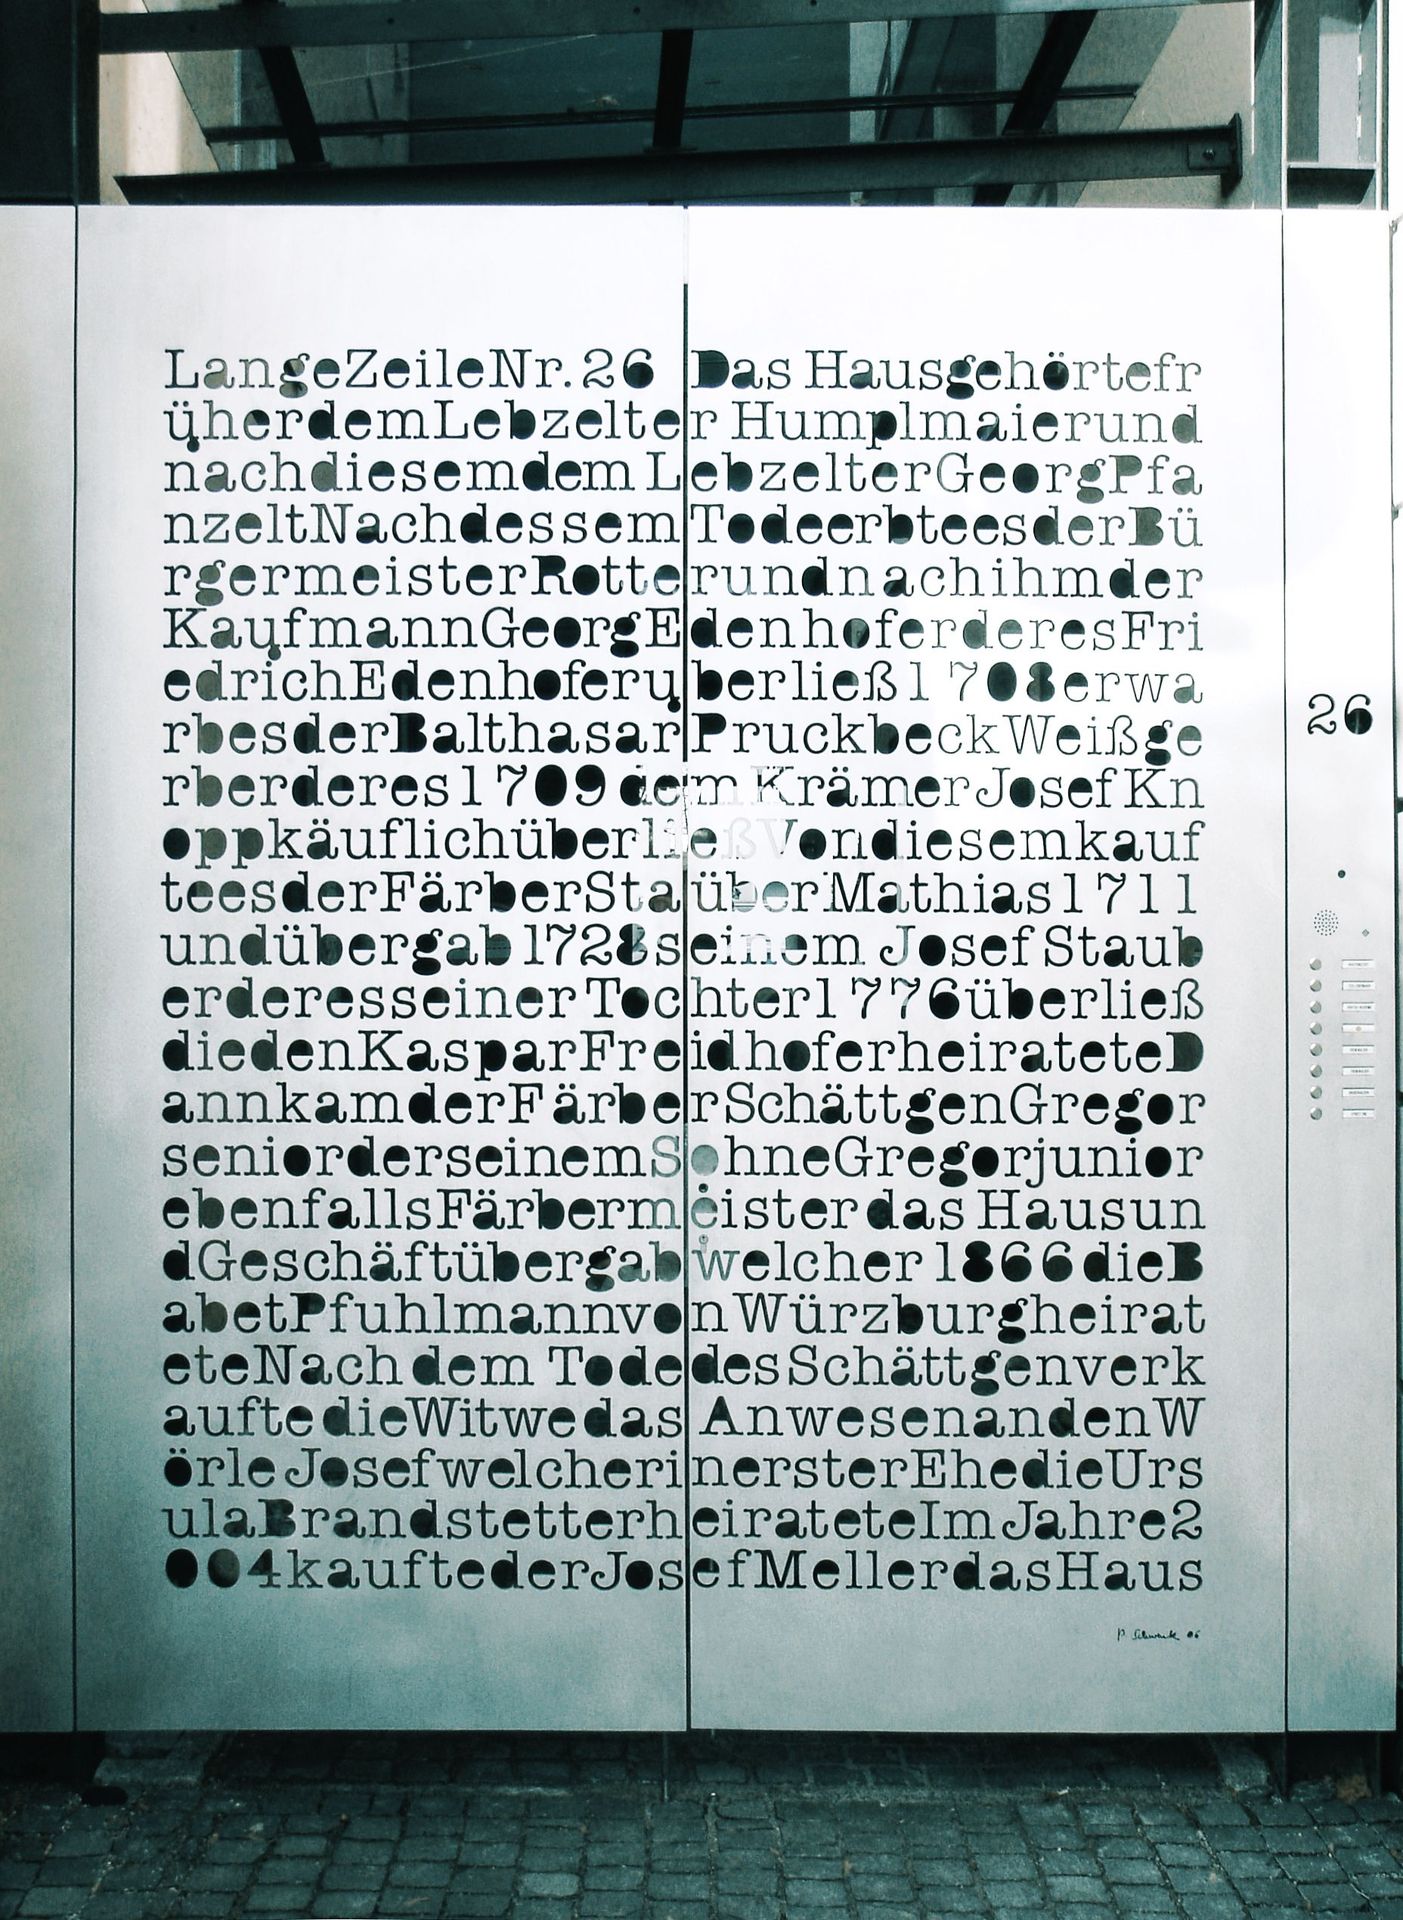 LangeZeileNr.26 Das Hausgehörtefr
üherdemLebzelter Humplmaierund
nachdiesemdem LebzelterGeorgPfa
nzeltNachdessem TodeerbteesderBü
rgermeisterRotterundnachihmder
KaufmannGeorgEdenhoferderesFri
edrichEdenhoferüberließ1708erwa
rbesderBalthasar PruckbeckWeißge
rberderes1709dem Krämer Josef Kn
oppkäuflichüberließVondiesemkauf
teesderFärberStaüber Mathias1711
undübergab 1728seinem Josef Staub
erderesseiner Tochter1776überließ
diedenKasparFreidhoferheirateteD
annkamderFärberSchättgenGregor
seniorderseinemSohneGregorjunior
ebenfallsFärbermeister das Hausun
dGeschäftübergabwelcher 1866 dieB
abetPfuhlmannvon Würzburgheirat
eteNach dem Tode desSchättgenverk
aufte dieWitwe das AnwesenandenW
örle JosefwelcherinersterEhedieUrs
ulaBrandstetterheirateteIm Jahre2
004kaufteder JosefMellerdasHaus
26